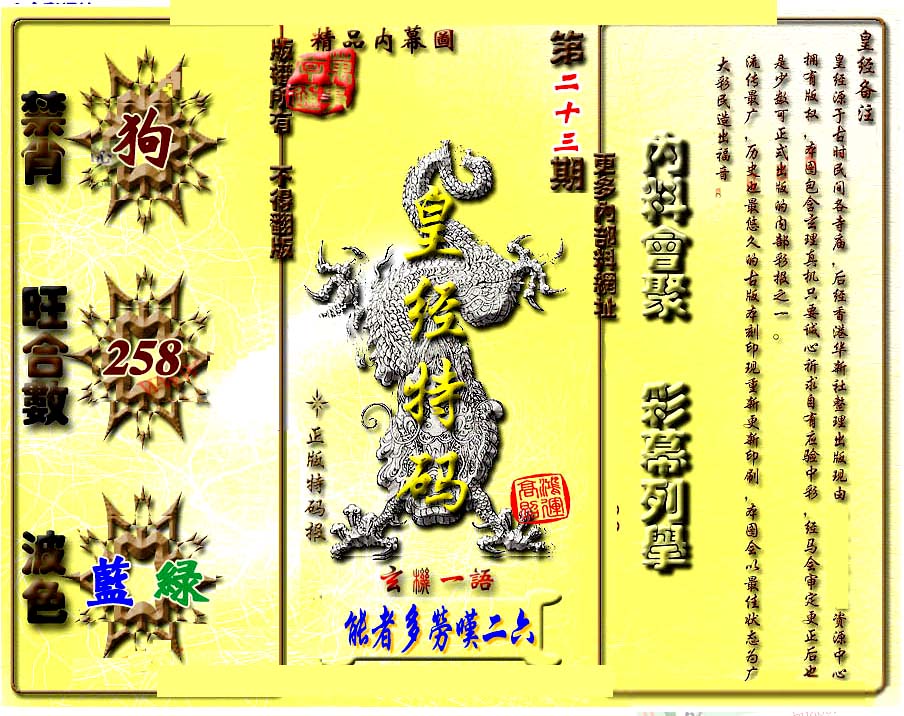 禁肖
狗
旺合數
258
波色
藍 綠
版權所有 不得翻版
精品内幕圖
第二十三期
更多内部料網址
皇经特码
正版特码报
鸿運高照
玄機一語
能者多勞嘆二六
内料會聚
彩幕列舉
皇经备注
皇经源于古时民间各寺庙,后经香港华新社整理出版现由 资源中心
拥有版权,本图包含玄理真机只要诚心祈求自有应验中彩,经马会审定更正后也
是少数可正式出版的内部彩报之一。
流传最广,历史也最悠久的古版本刻印现重新更新印刷,本图会以最佳状态为广
大彩民造出福音